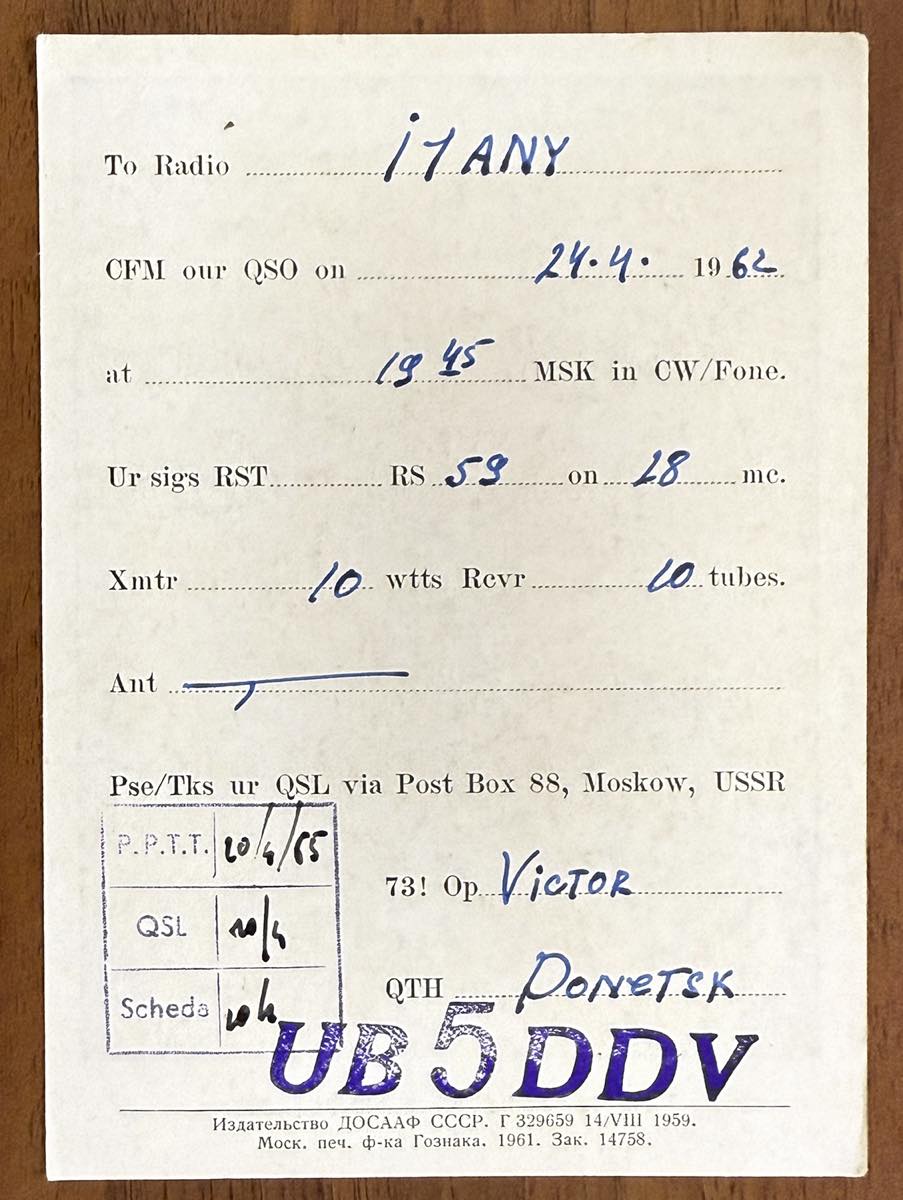 To Radio i1ANY
CFM our QSO on 24.4. 1962
at 19 45 MSK in CW/Fone.
Ur sigs RST RS 59 on 28 mc.
Xmtr 10 wtts Rcvr 10 tubes.
Ant
Pse/Tks ur QSL via Post Box 88, Moskow, USSR
P.P.T.T. 20/4/65
QSL 20/4
Scheda 20/4
73! Op Victor
QTH Donetsk
UB5DDV
Издательство ДОСААФ СССР. Г 329659 14/VIII 1959.
Моск. печ. ф-ка Гознака. 1961. Зак. 14758.